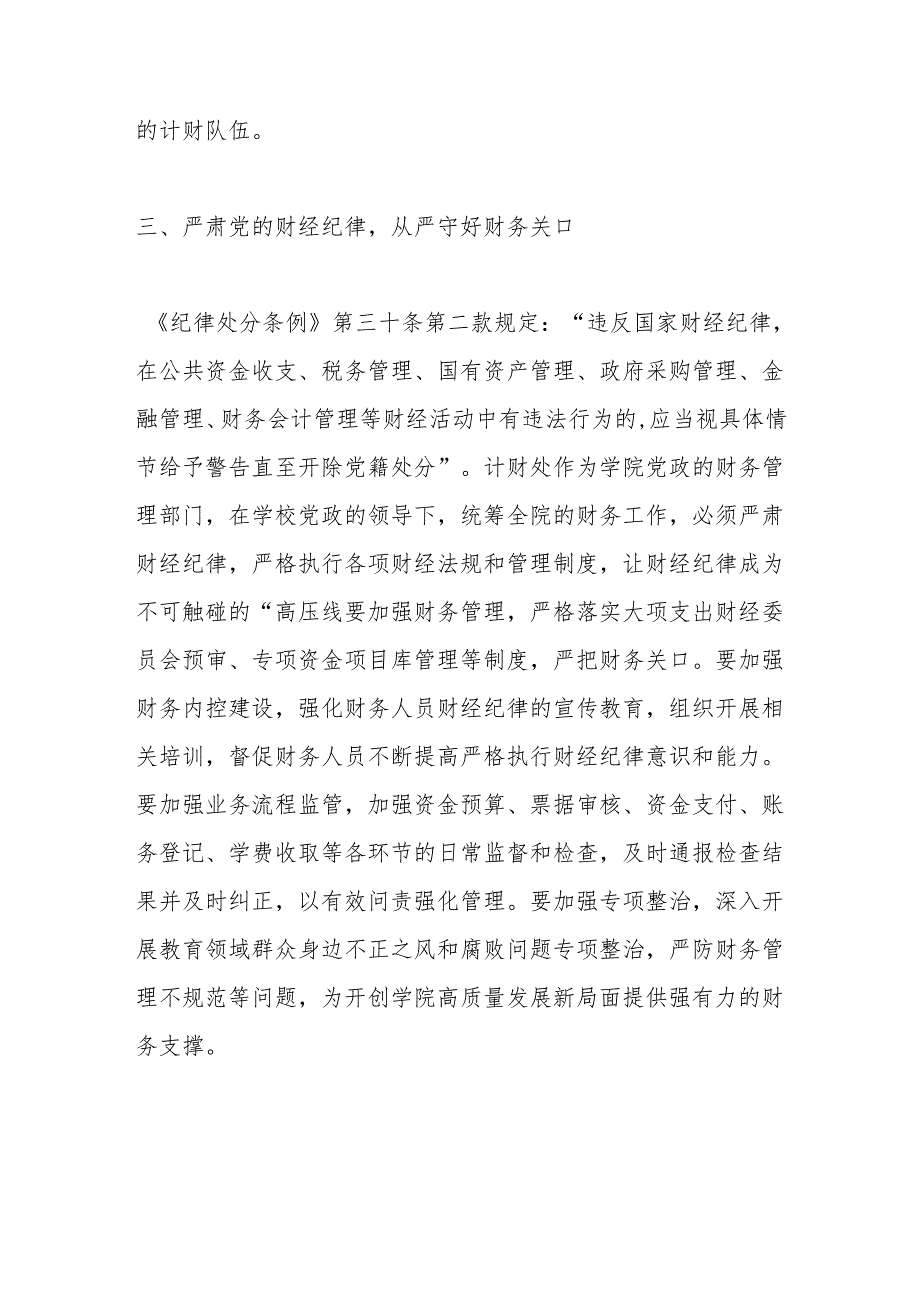 的计财队伍。
三、严肃党的财经纪律，从严守好财务关口
《纪律处分条例》第三十条第二款规定：“违反国家财经纪律，
在公共资金收支、税务管理、国有资产管理、政府采购管理、金
融管理、财务会计管理等财经活动中有违法行为的,应当视具体情
节给予警告直至开除党籍处分”。计财处作为学院党政的财务管
理部门，在学校党政的领导下，统筹全院的财务工作，必须严肃
财经纪律，严格执行各项财经法规和管理制度，让财经纪律成为
不可触碰的“高压线要加强财务管理，严格落实大项支出财经委
员会预审、专项资金项目库管理等制度，严把财务关口。要加强
财务内控建设，强化财务人员财经纪律的宣传教育，组织开展相
关培训，督促财务人员不断提高严格执行财经纪律意识和能力。
要加强业务流程监管，加强资金预算、票据审核、资金支付、账
务登记、学费收取等各环节的日常监督和检查，及时通报检查结
果并及时纠正，以有效问责强化管理。要加强专项整治，深入开
展教育领域群众身边不正之风和腐败问题专项整治，严防财务管
理不规范等问题，为开创学院高质量发展新局面提供强有力的财
务支撑。